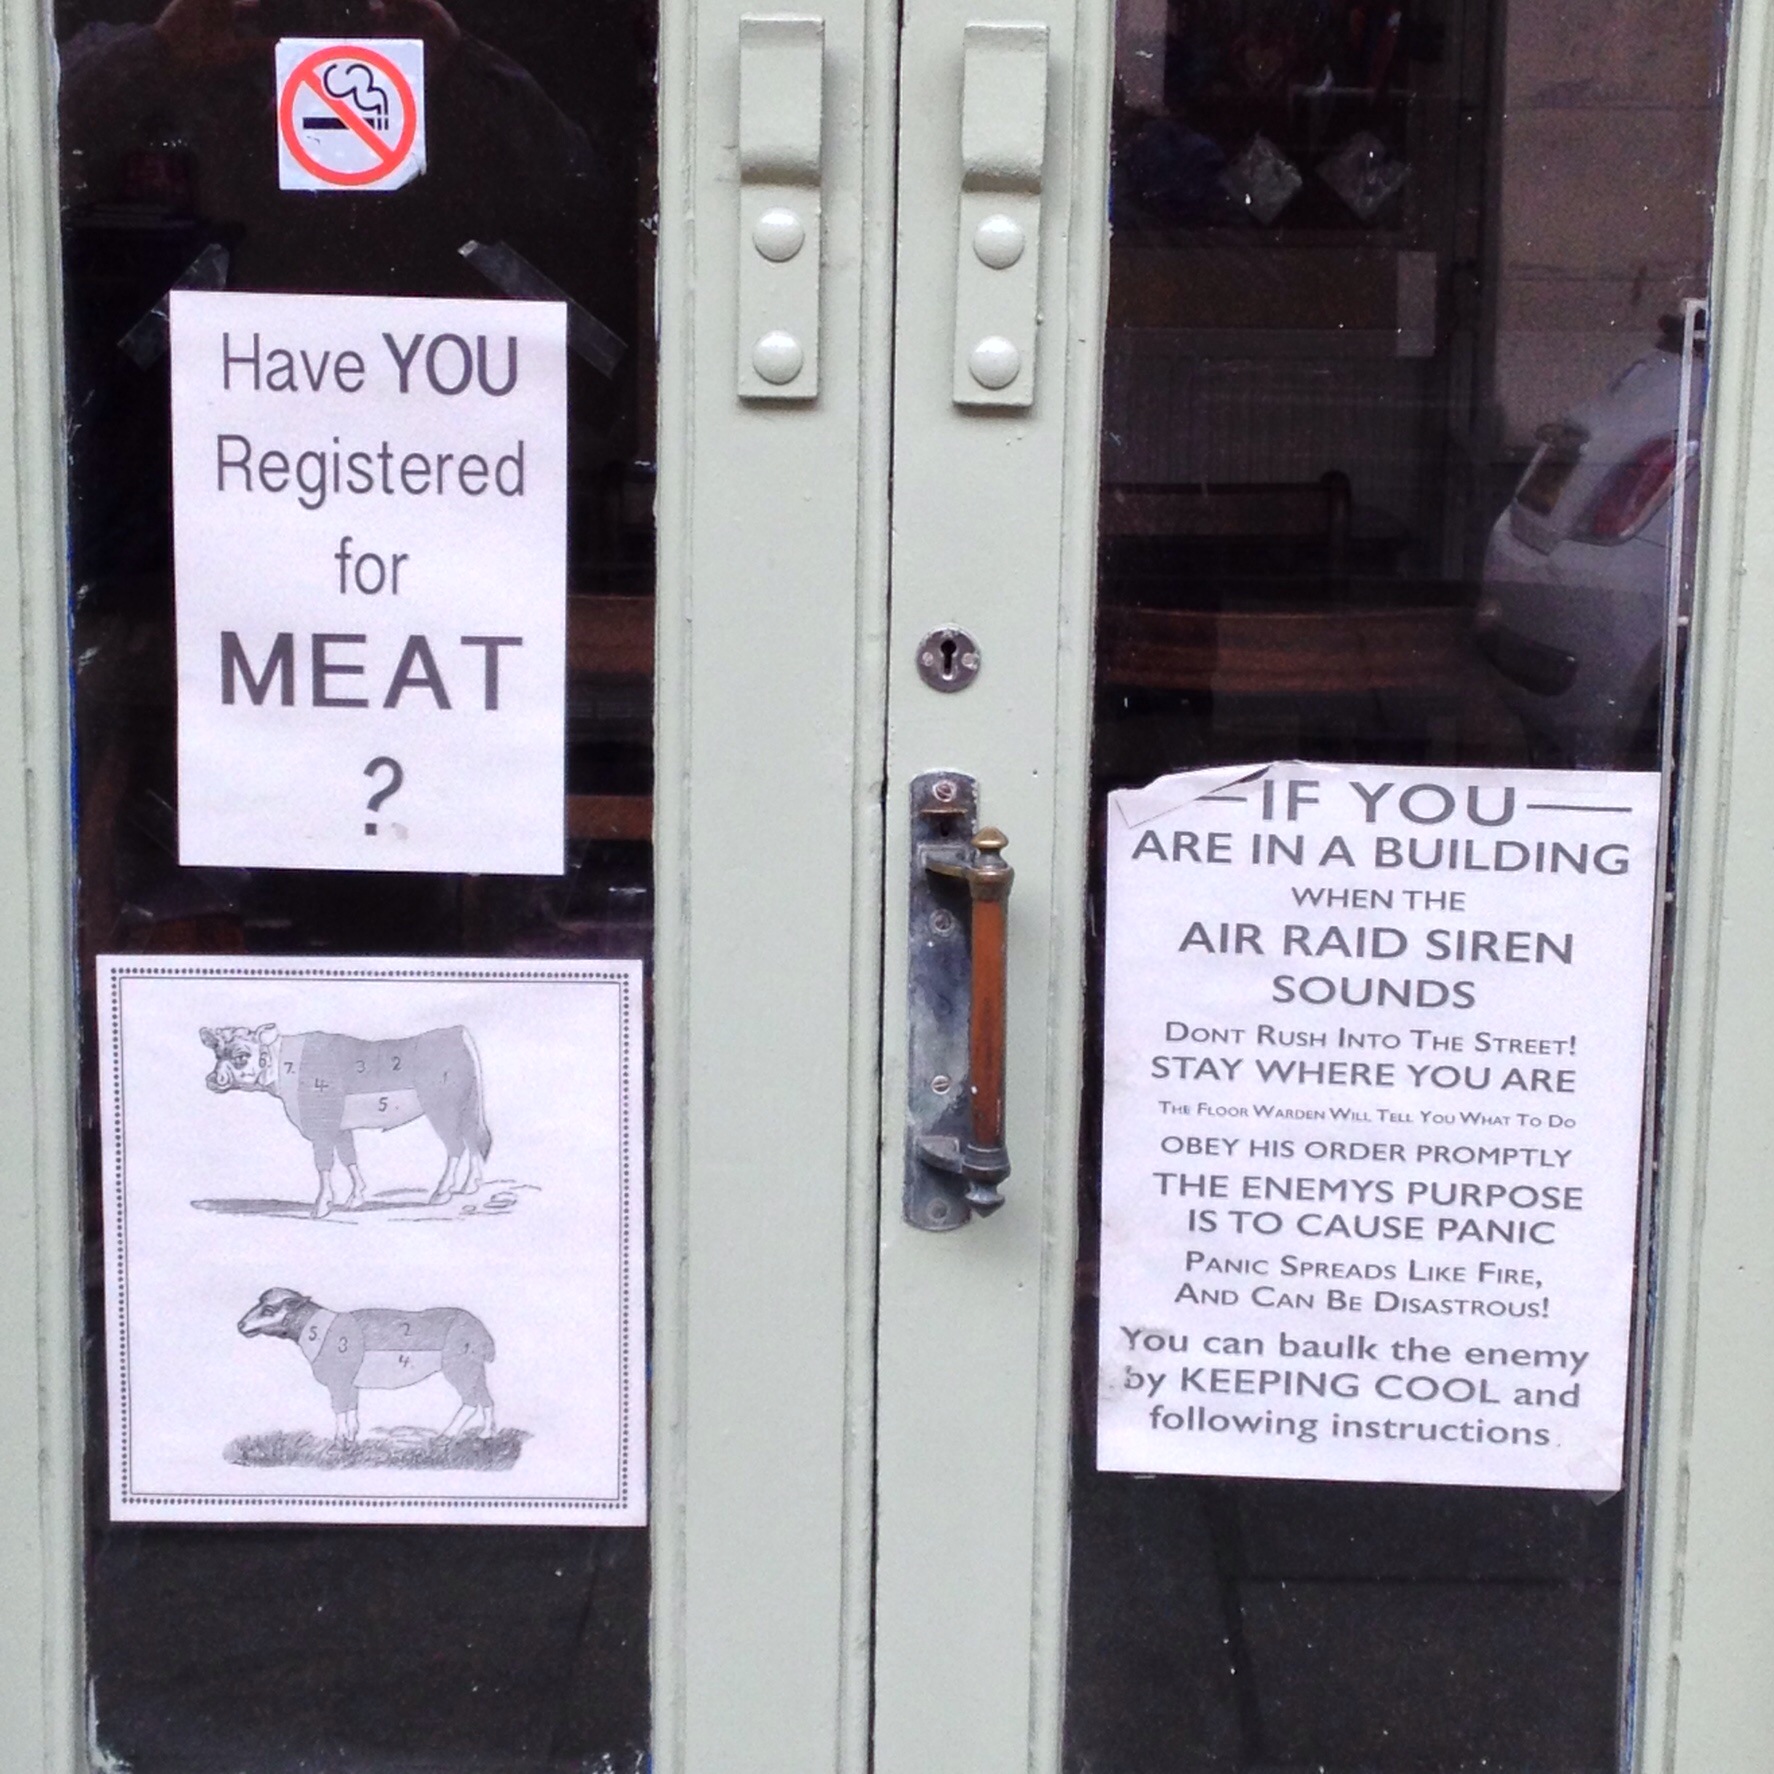 Have YOU
Registered
for
MEAT
?
7.
6
3
2
1
4
5.
5.
3
2
1.
4.
IF YOU
ARE IN A BUILDING
WHEN THE
AIR RAID SIREN
SOUNDS
DONT RUSH INTO THE STREET!
STAY WHERE YOU ARE
THE FLOOR WARDEN WILL TELL YOU WHAT TO DO
OBEY HIS ORDER PROMPTLY
THE ENEMYS PURPOSE
IS TO CAUSE PANIC
PANIC SPREADS LIKE FIRE,
AND CAN BE DISASTROUS!
You can baulk the enemy
by KEEPING COOL and
following instructions.